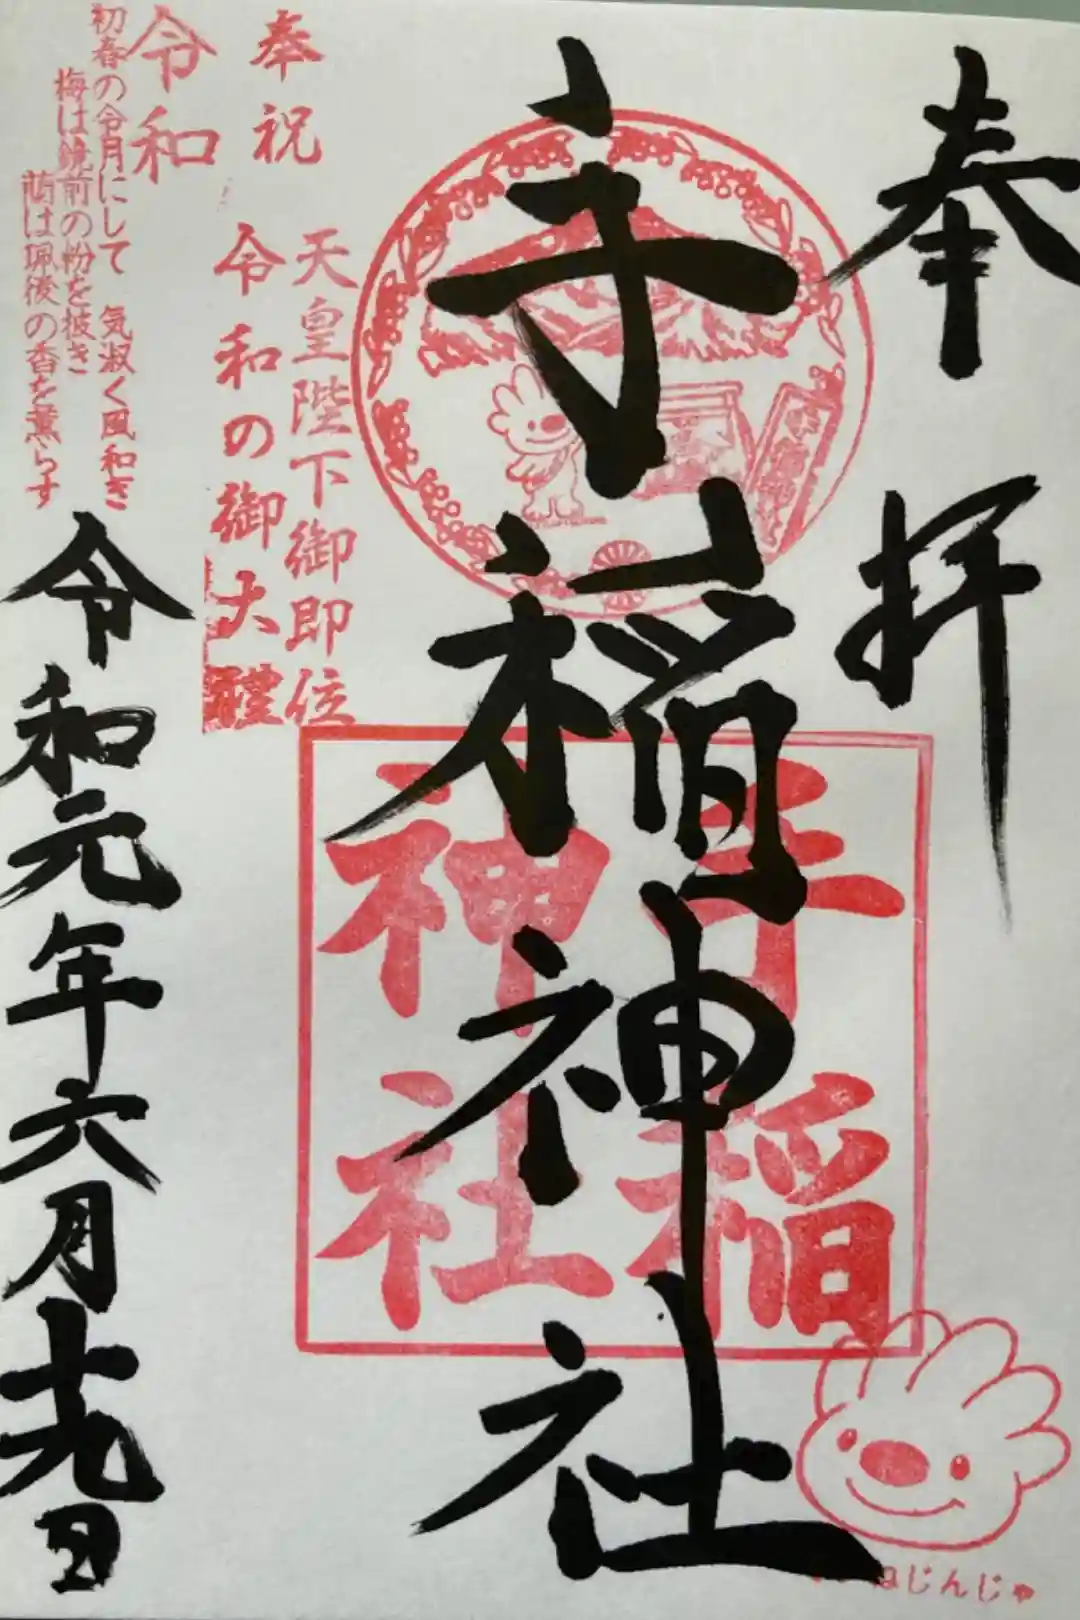 奉拝
手稲神社
手稲
神社
ねじんじゃ
天皇陛下御即位
奉祝 令和の御大礼
令和
初春の令月にして 気淑く風和ぎ
梅は鏡前の粉を披き
蘭は珮後の香を薫らす
令和元年六月十九日